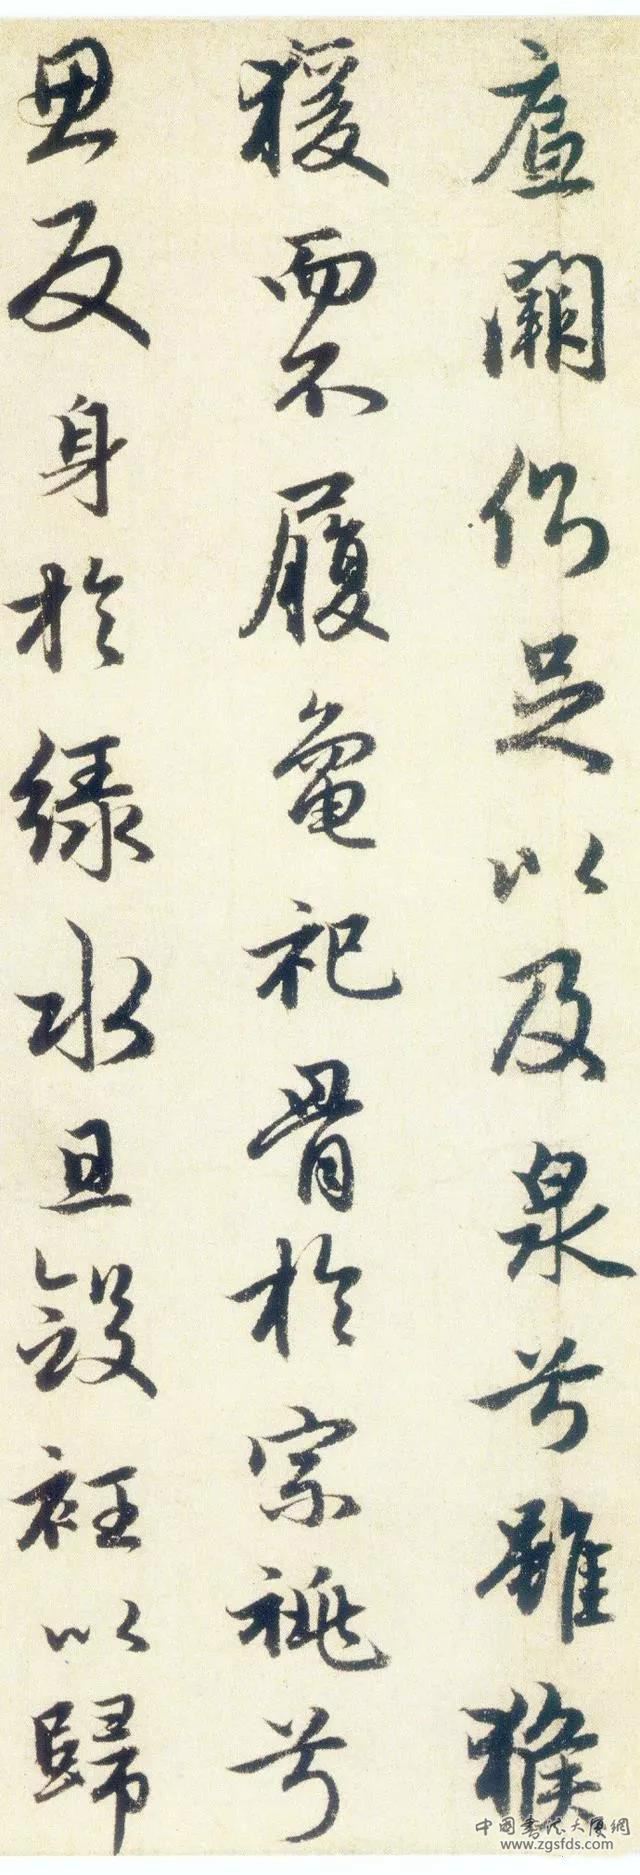 闕仍足以及泉兮雖猴
猨而不履龜祀骨於宗祧兮
思反身於綠水且斂衽以歸
中国书法大厦網
www.zgsfds.com